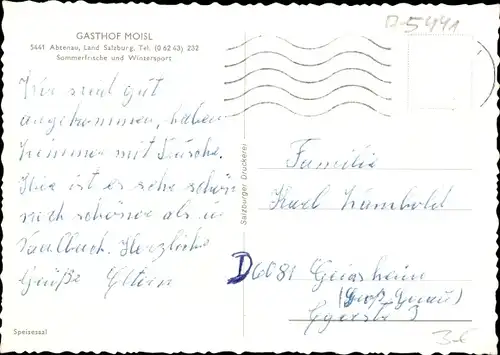 GASTHOF MOISL
5441 Abtenau, Land Salzburg, Tel. (0 62 43) 232
Sommerfrische und Wintersport
Wir sind gut
angekommen, haben
Zimmer mit Dusche.
Hier ist es sehr schön
noch schöner als in
Saalbach. Herzliche
Grüße Eltern
Speisesaal
Salzburger Druckerei
A-5441
Familie
Karl Humbold
D 6081 Geinsheim
(Groß Gerau)
3.-